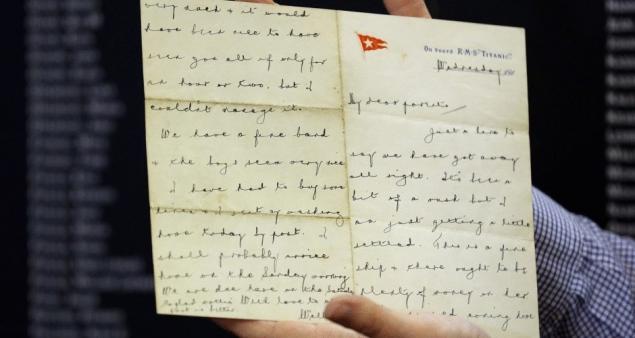 On board R.M.S. "Titanic".
Wednesday 191
My dear parents
Just a line to
say we have got away
all right. It's been a
bit of a rush but I
am just getting a little
settled. This is a fine
ship & there ought to be
plenty of money on her
very sad & it would
have been nice to have
seen you all if only for
an hour or two, but I
couldn't manage it.
We have a fine band
& the boys seem very nice
I have had to buy some
linen and I sent my washing
home today by post. I
shall probably arrive
home on the Sunday morning
We are due here on the Saturday
With love to
is better.